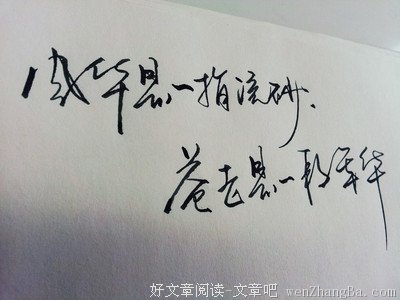 风华是一指流砂、
苍老是一段年华
好文章阅读-文章吧 wenZhangBa.com